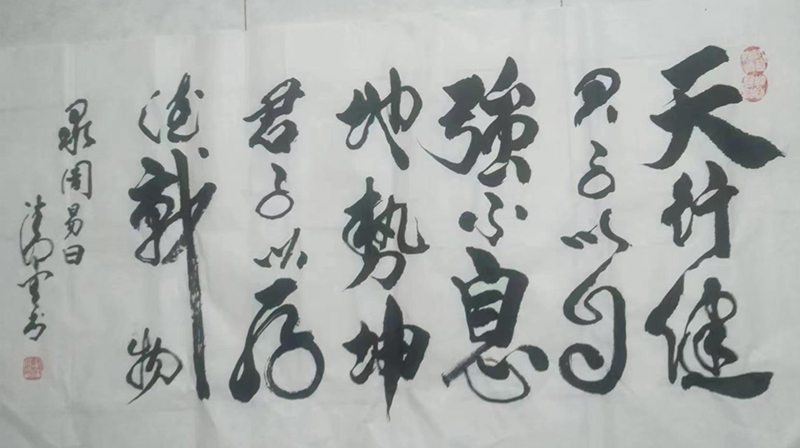 天行健
君子以自
強不息
地勢坤
君子以厚
德載物
录周易曰
书